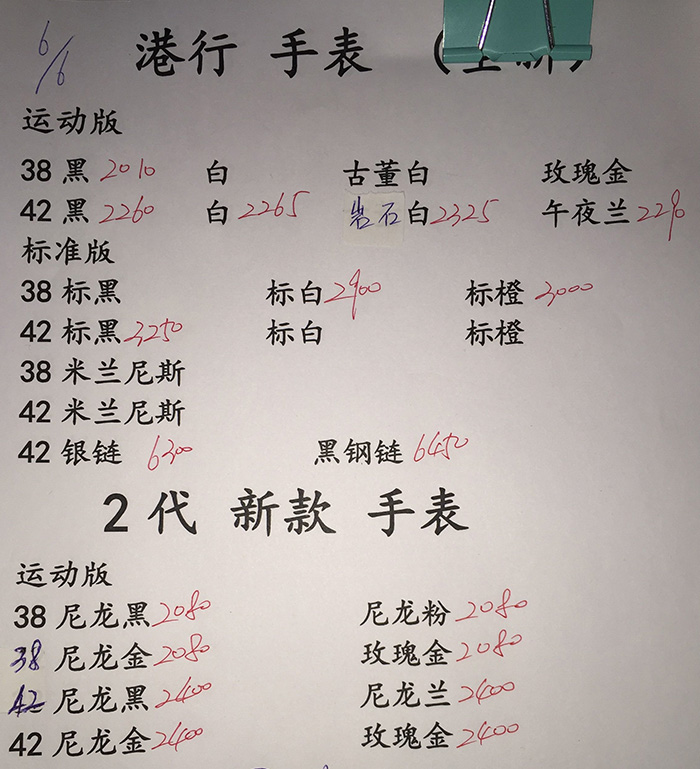 6/6
港行 手表
运动版
38 黑 2010 白 古董白 玫瑰金
42 黑 2260 白 2265 岩石 白 2325 午夜兰 2290
标准版
38 标黑 标白 2900 标橙 3000
42 标黑 3250 标白 标橙
38 米兰尼斯
42 米兰尼斯
42 银链 6300 黑钢链 6450
2代 新款 手表
运动版
38 尼龙黑 2080 尼龙粉 2080
38 尼龙金 2080 玫瑰金 2080
42 尼龙黑 2400 尼龙兰 2400
42 尼龙金 2400 玫瑰金 2400